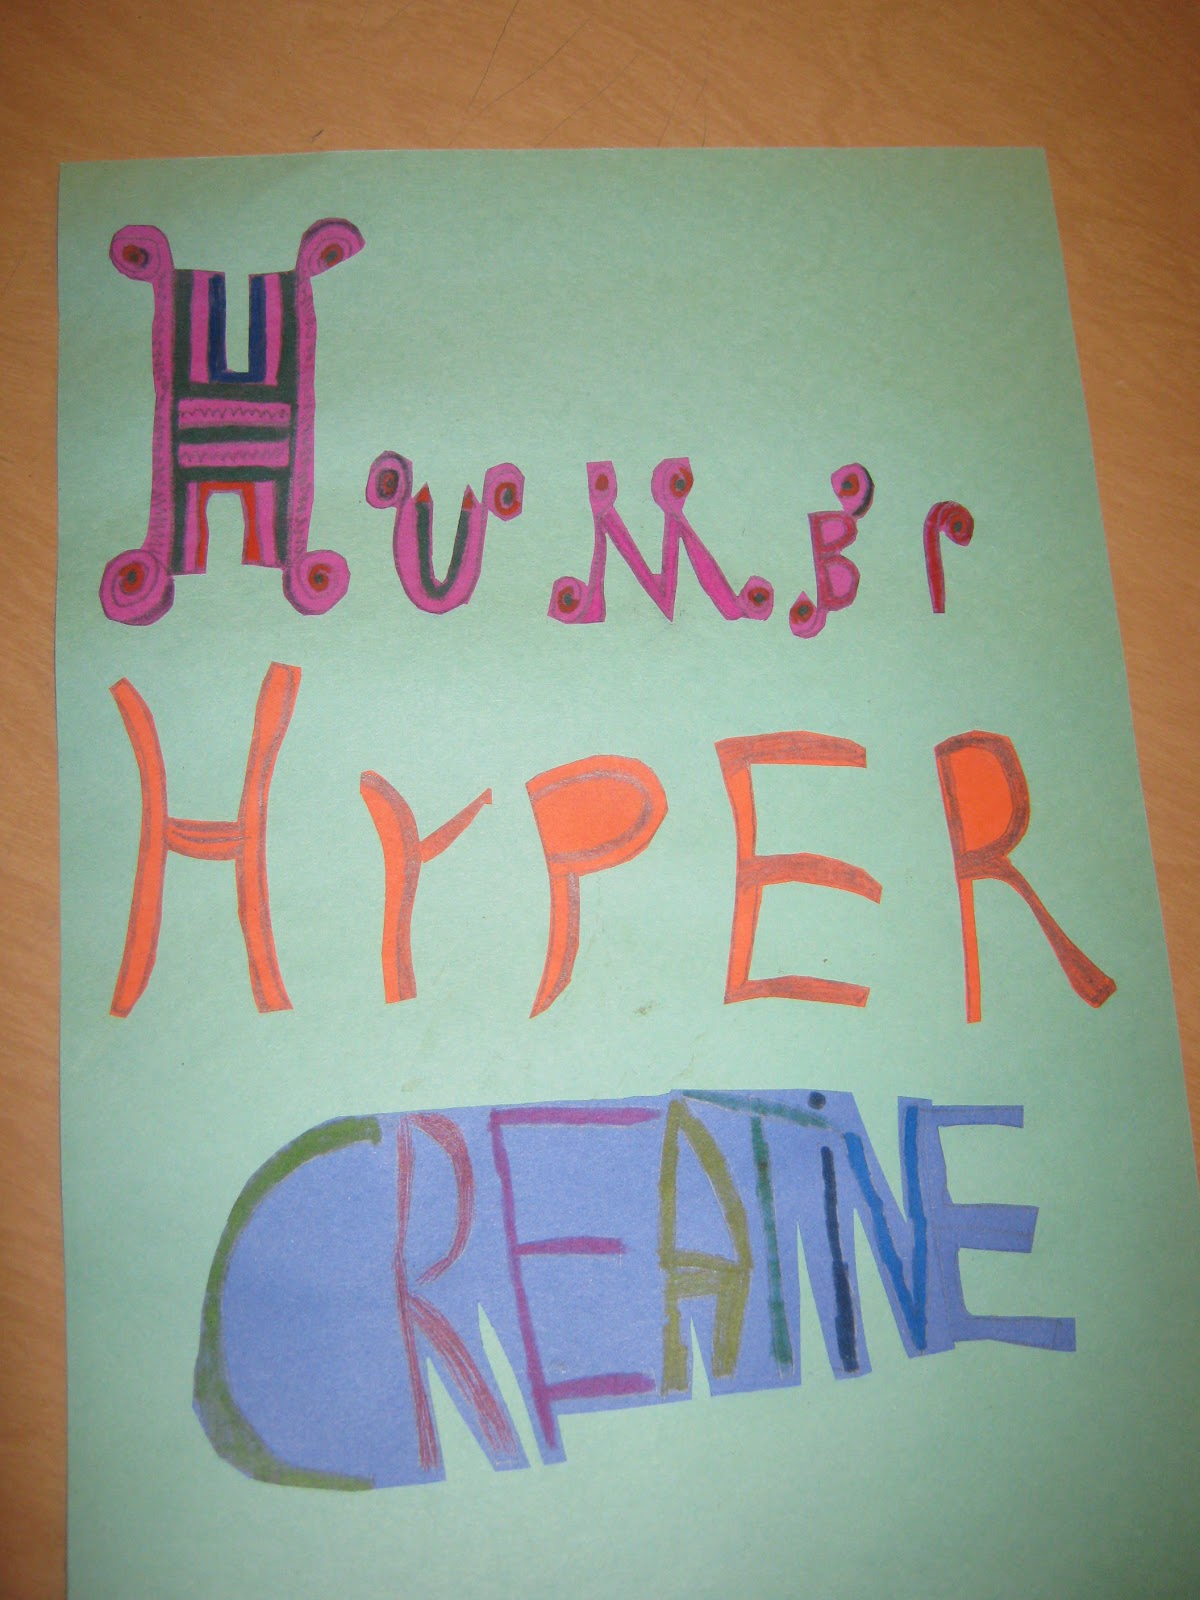 HUMBr
HYPER
CREATiVE